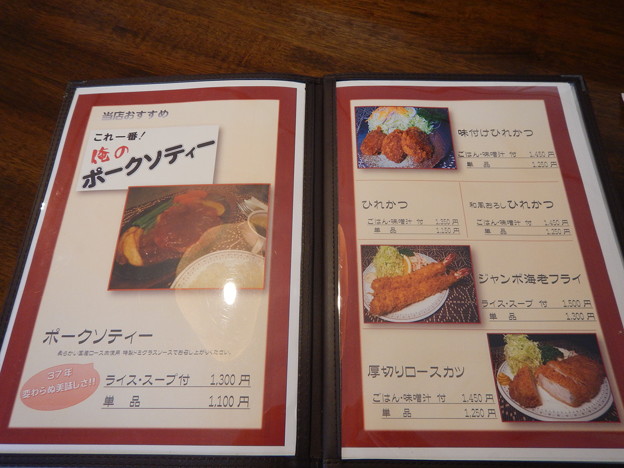 当店おすすめ
これ一番!
俺の
ポークソティー
ポークソティー
37年
変わらぬ美味しさ!!
ライス・スープ付 1,300円
単品 1,100円
味付けひれかつ
ごはん・味噌汁 付 1,450円
単品 1,250円
ひれかつ
ごはん・味噌汁 付 1,350円
単品
和風おろしひれかつ
ごはん・味噌汁 付 1,450円
単品 1,250円
ジャンボ海老フライ
ライス・スープ 付 1,500円
単品 1,300円
厚切りロースカツ
ごはん・味噌汁 付 1,450円
単品 1,250円